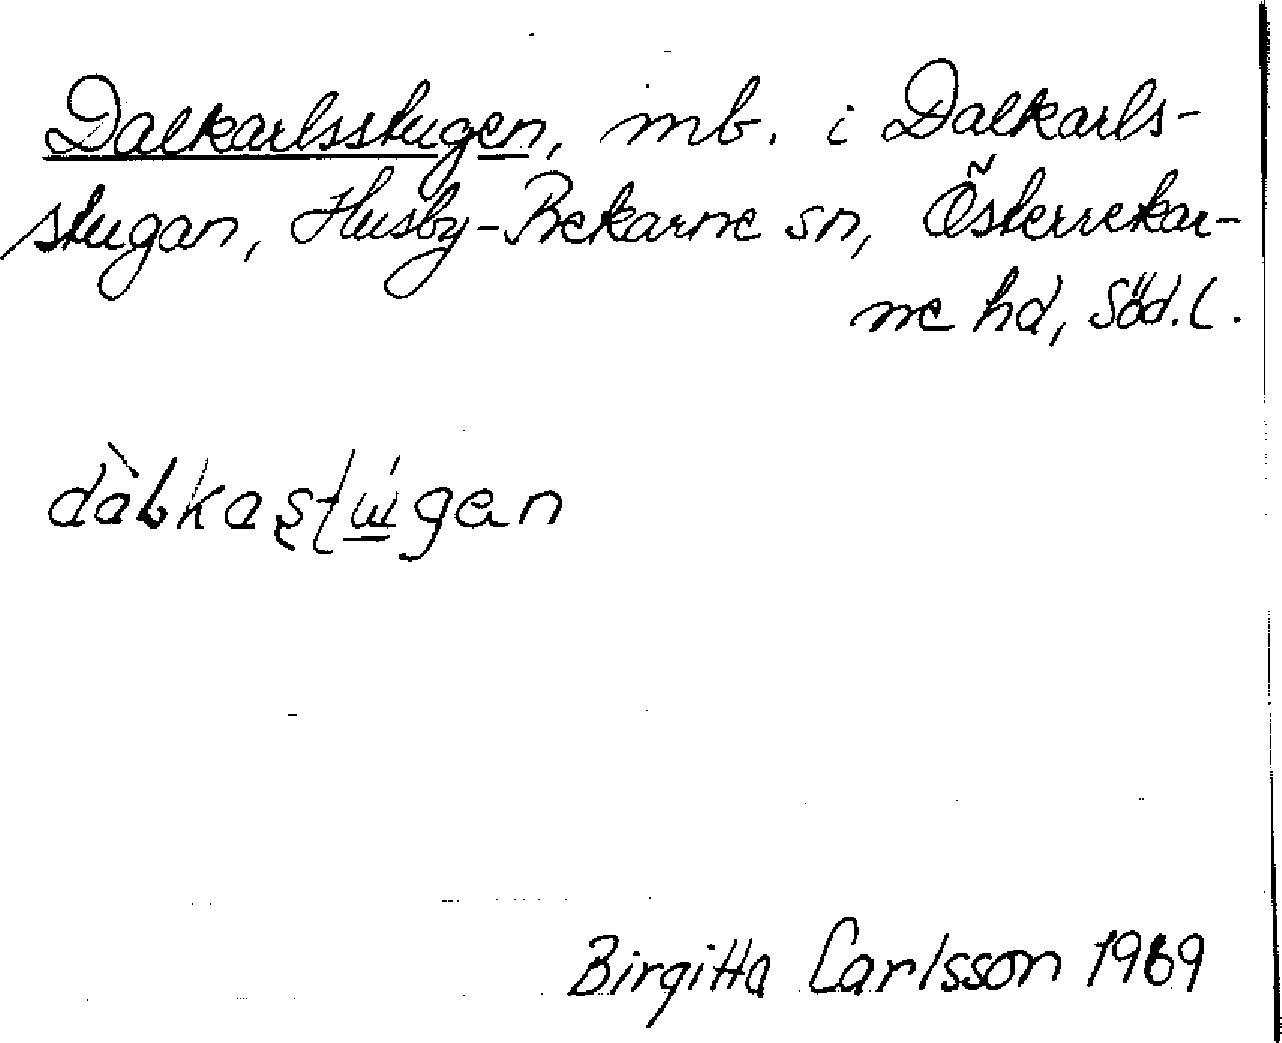 Dalkarlsstugen, mb. i Dalkarls-
stugan, Husby-Rekarne sn, Österrekar-
ne hd, Söd.l.
dàlkaştúgan
Birgitta Carlsson 1969